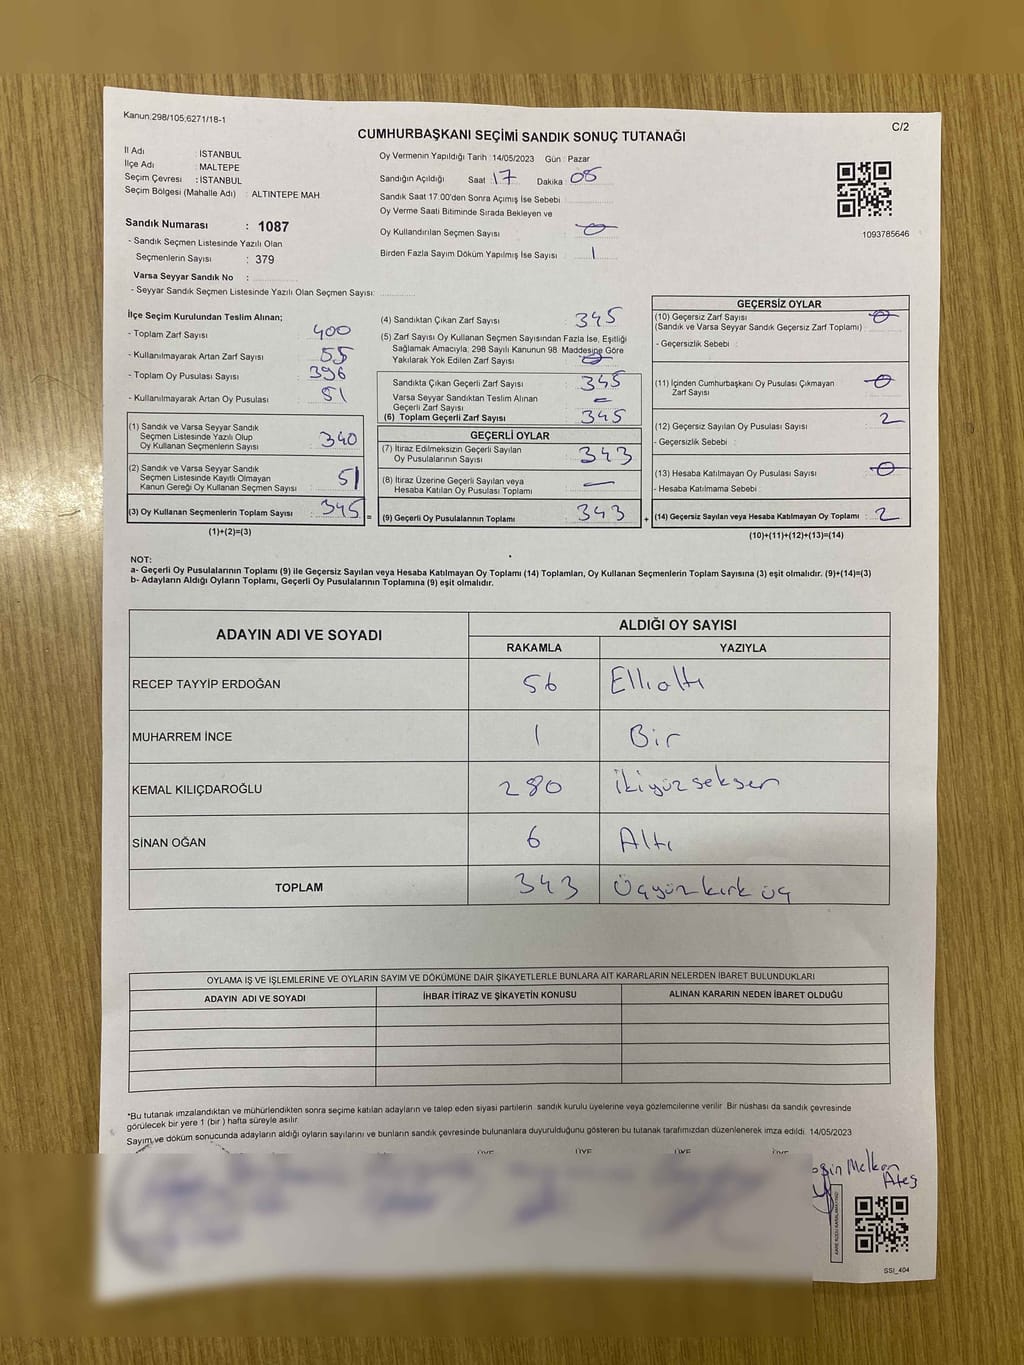 Kanun:298/105;6271/18-1
C/2
CUMHURBAŞKANI SEÇİMİ SANDIK SONUÇ TUTANAĞI
İl Adı : İSTANBUL
İlçe Adı : MALTEPE
Seçim Çevresi : İSTANBUL
Seçim Bölgesi (Mahalle Adı) : ALTINTEPE MAH
Sandık Numarası : 1087
- Sandık Seçmen Listesinde Yazılı Olan
Seçmenlerin Sayısı : 379
Varsa Seyyar Sandık No :
- Seyyar Sandık Seçmen Listesinde Yazılı Olan Seçmen Sayısı:
Oy Vermenin Yapıldığı Tarih :14/05/2023 Gün : Pazar
Sandığın Açıldığı Saat : 17 Dakika : 05
Sandık Saat 17.00'den Sonra Açımış İse Sebebi :
Oy Verme Saati Bitiminde Sırada Bekleyen ve
Oy Kullandırılan Seçmen Sayısı : 0
Birden Fazla Sayım Döküm Yapılmış İse Sayısı : 1
1093785646
İlçe Seçim Kurulundan Teslim Alınan;
- Toplam Zarf Sayısı : 400
- Kullanılmayarak Artan Zarf Sayısı : 55
- Toplam Oy Pusulası Sayısı : 396
- Kullanılmayarak Artan Oy Pusulası : 51
(1) Sandık ve Varsa Seyyar Sandık
Seçmen Listesinde Yazılı Olup
Oy Kullanan Seçmenlerin Sayısı : 340
(2) Sandık ve Varsa Seyyar Sandık
Seçmen Listesinde Kayıtlı Olmayan
Kanun Gereği Oy Kullanan Seçmen Sayısı : 5
(3) Oy Kullanan Seçmenlerin Toplam Sayısı : 345
(1)+(2)=(3)
(4) Sandıktan Çıkan Zarf Sayısı : 345
(5) Zarf Sayısı Oy Kullanan Seçmen Sayısından Fazla İse, Eşitliği
Sağlamak Amacıyla, 298 Sayılı Kanunun 98. Maddesine Göre
Yakılarak Yok Edilen Zarf Sayısı : 0
Sandıkta Çıkan Geçerli Zarf Sayısı : 345
Varsa Seyyar Sandıktan Teslim Alınan
Geçerli Zarf Sayısı : -
(6) Toplam Geçerli Zarf Sayısı : 345
GEÇERLİ OYLAR
(7) İtiraz Edilmeksizin Geçerli Sayılan
Oy Pusulalarının Sayısı : 343
(8) İtiraz Üzerine Geçerli Sayılan veya
Hesaba Katılan Oy Pusulası Toplamı : -
(9) Geçerli Oy Pusulalarının Toplamı : 343
GEÇERSİZ OYLAR
(10) Geçersiz Zarf Sayısı : 0
(Sandık ve Varsa Seyyar Sandık Geçersiz Zarf Toplamı)
- Geçersizlik Sebebi :
(11) İçinden Cumhurbaşkanı Oy Pusulası Çıkmayan
Zarf Sayısı : 0
(12) Geçersiz Sayılan Oy Pusulası Sayısı : 2
- Geçersizlik Sebebi :
(13) Hesaba Katılmayan Oy Pusulası Sayısı : 0
- Hesaba Katılmama Sebebi :
(14) Geçersiz Sayılan veya Hesaba Katılmayan Oy Toplamı : 2
(10)+(11)+(12)+(13)=(14)
NOT:
a- Geçerli Oy Pusulalarının Toplamı (9) ile Geçersiz Sayılan veya Hesaba Katılmayan Oy Toplamı (14) Toplamları, Oy Kullanan Seçmenlerin Toplam Sayısına (3) eşit olmalıdır. (9)+(14)=(3)
b- Adayların Aldığı Oyların Toplamı, Geçerli Oy Pusulalarının Toplamına (9) eşit olmalıdır.
ADAYIN ADI VE SOYADI
ALDIĞI OY SAYISI
RAKAMLA YAZIYLA
RECEP TAYYİP ERDOĞAN 56 Ellialtı
MUHARREM İNCE 1 Bir
KEMAL KILIÇDAROĞLU 280 İkiyüzseksen
SİNAN OĞAN 6 Altı
TOPLAM 343 Üçyüzkırk üç
OYLAMA İŞ VE İŞLEMLERİNE VE OYLARIN SAYIM VE DÖKÜMÜNE DAİR ŞİKAYETLERLE BUNLARA AİT KARARLARIN NELERDEN İBARET BULUNDUKLARI
ADAYIN ADI VE SOYADI İHBAR İTİRAZ VE ŞİKAYETİN KONUSU ALINAN KARARIN NEDEN İBARET OLDUĞU
*Bu tutanak imzalandıktan ve mühürlendikten sonra seçime katılan adayların ve talep eden siyasi partilerin sandık kurulu üyelerine veya gözlemcilerine verilir. Bir nüshası da sandık çevresinde
görülecek bir yere 1 (bir ) hafta süreyle asılır.
Sayım ve döküm sonucunda adayların aldığı oyların sayılarını ve bunların sandık çevresinde bulunanlara duyurulduğunu gösteren bu tutanak tarafımızdan düzenlenerek imza edildi. 14/05/2023
ÜYE ÜYE ÜYE ÜYE
Ateş
SSI_404